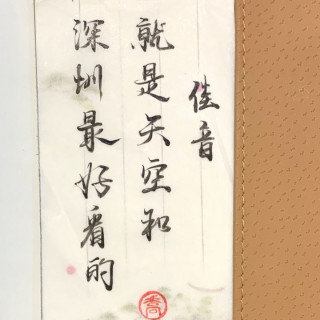 深圳最好看的
就是天空和
佳音
喬